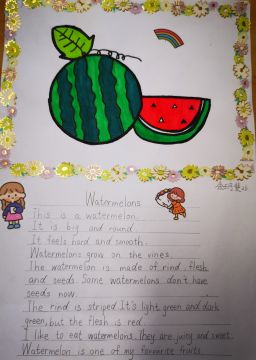 Watermelons
This is a watermelon.
It is big and round.
It feels hard and smooth.
Watermelons grow on the vines.
The watermelon is made of rind, flesh
and seeds. Some watermelons don't have
seeds now.
The rind is striped. It's light green and dark
green, but the flesh is red.
I like to eat watermelons. They are juicy and sweet.
Watermelon is one of my favourite fruits.